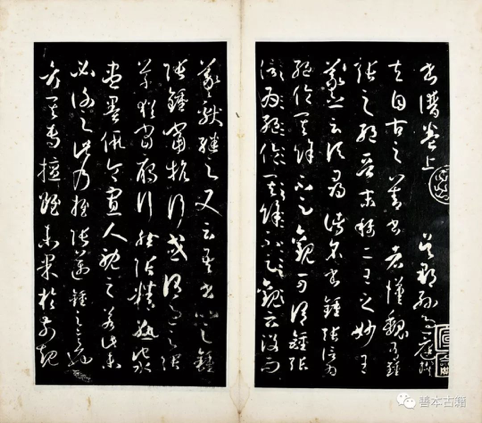 書譜卷上 吳郡孫過庭撰
夫自古之善書者漢魏有鍾
張之絕晉末稱二王之妙王
羲之云頃尋諸名書鍾張信為
絕倫其餘不足觀可謂鍾張
云沒而
羲獻繼之又云吾書比之鍾
張鍾當抗行或謂過之張
草猶當雁行然張精熟池水
盡墨假令寡人耽之若此未
必謝之此乃推張邁鍾之意也
考其專擅雖未果於前規
善本古籍